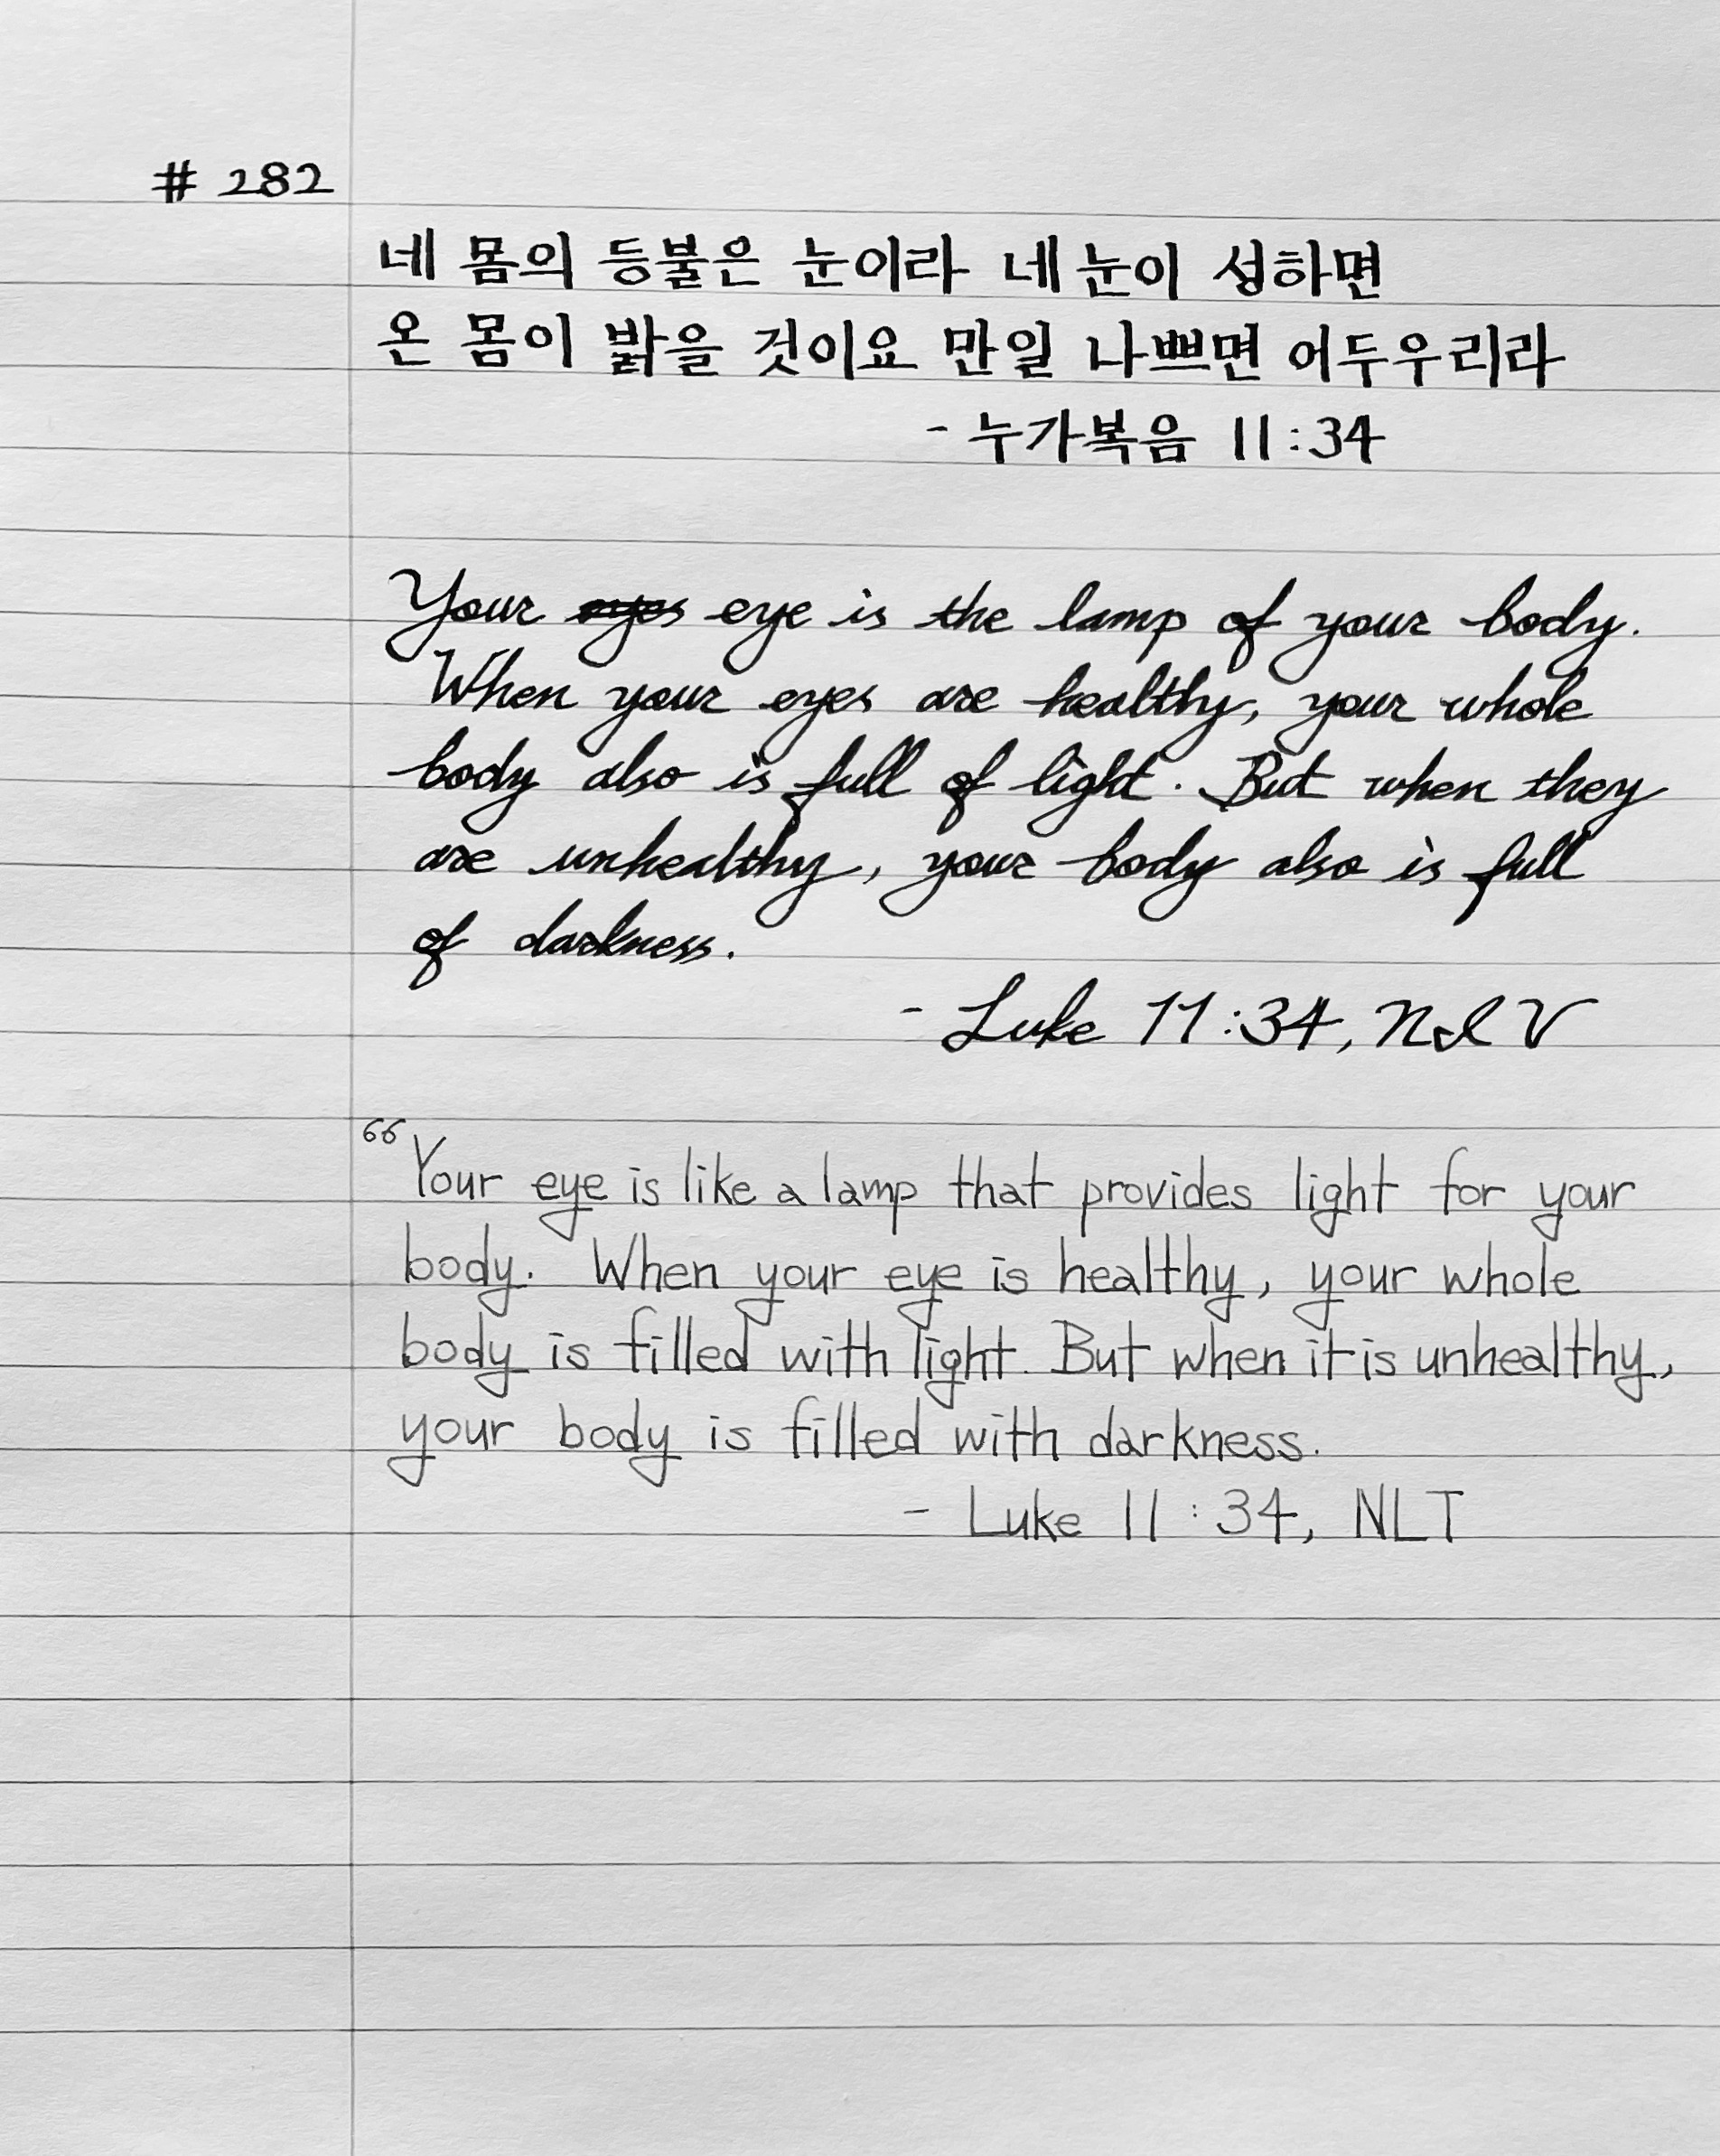 # 282
네 몸의 등불은 눈이라 네 눈이 성하면
온 몸이 밝을 것이요 만일 나쁘면 어두우리라
- 누가복음 11:34
Your eyes eye is the lamp of your body.
When your eyes are healthy, your whole
body also is full of light. But when they
are unhealthy, your body also is full
of darkness.
- Luke 11:34, NIV
“Your eye is like a lamp that provides light for your
body. When your eye is healthy, your whole
body is filled with light. But when it is unhealthy,
your body is filled with darkness.
- Luke 11:34, NLT